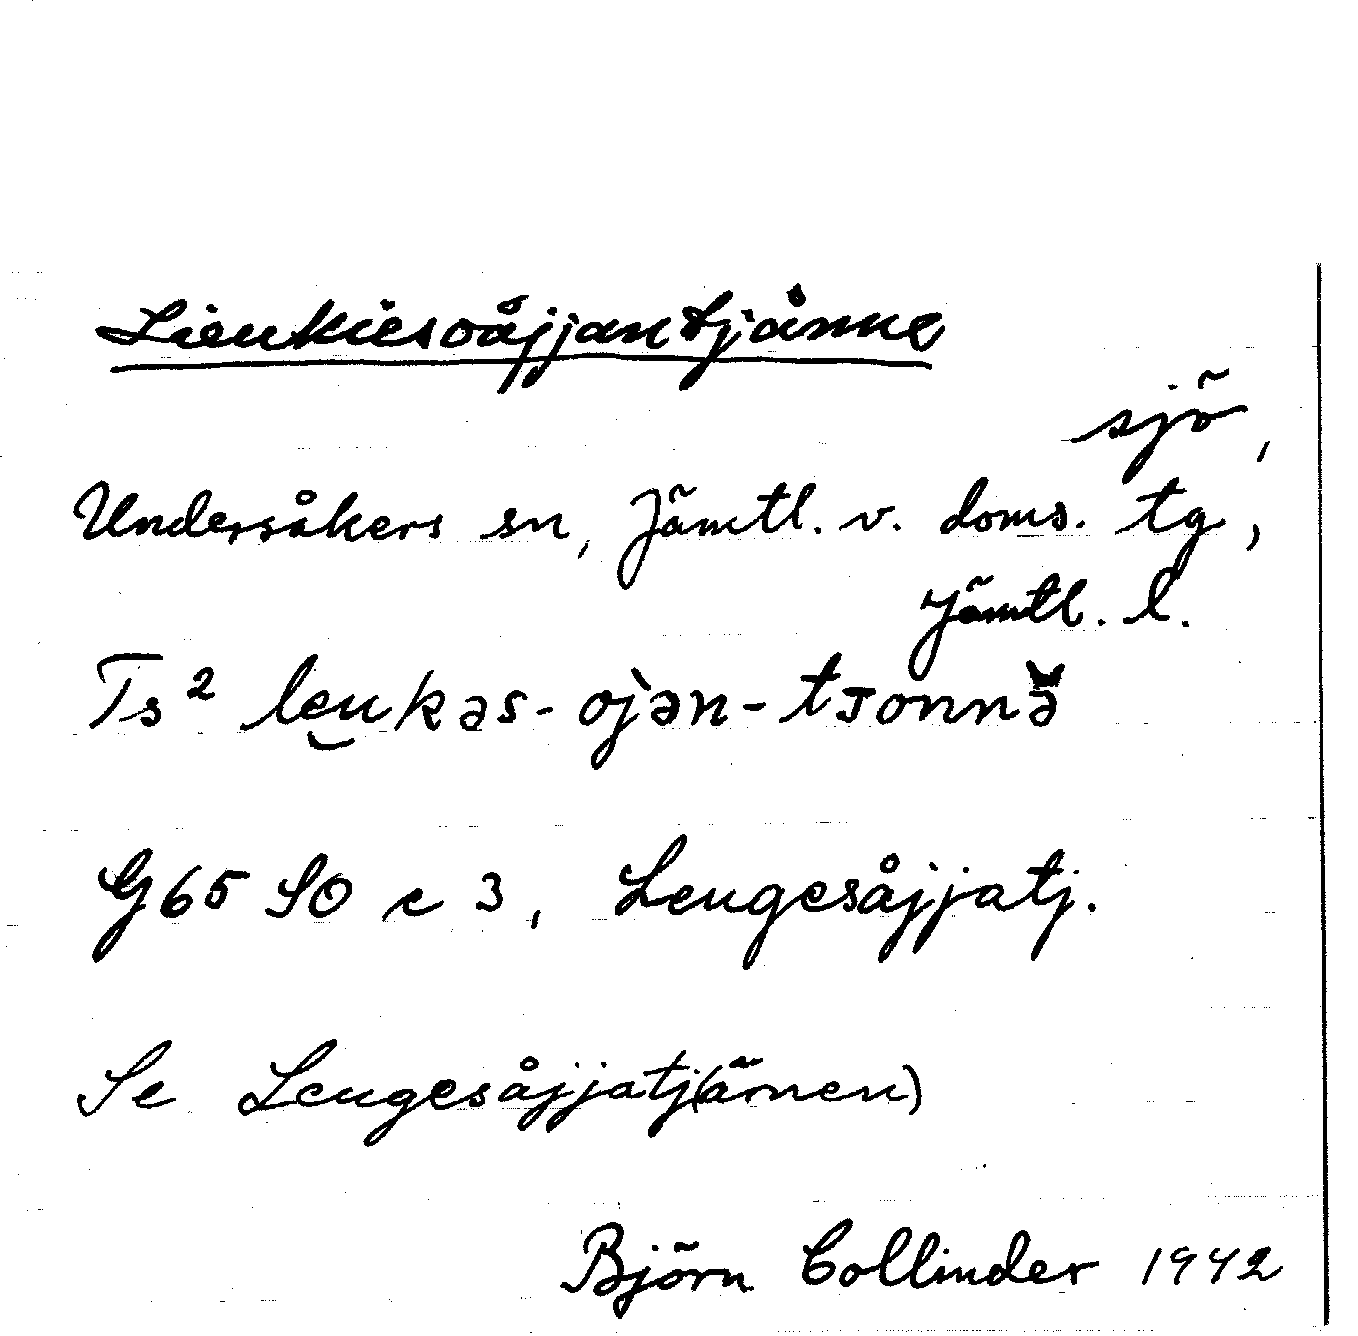 Lieukiesoåjjantjånne
sjö,
Undersåkers sn, Jämtl. v. doms. tg,
Jämtl. l.
Ts² le̮ukəs-ojən-tsonnə̆
G65 SO c 3, Leugesåjjatj.
Se Leugesåjjatj(ärnen)
Björn Collinder 1942